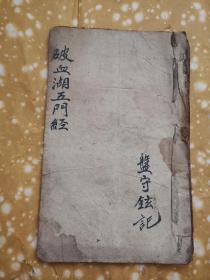 破血湖五門經
盤守鉉記